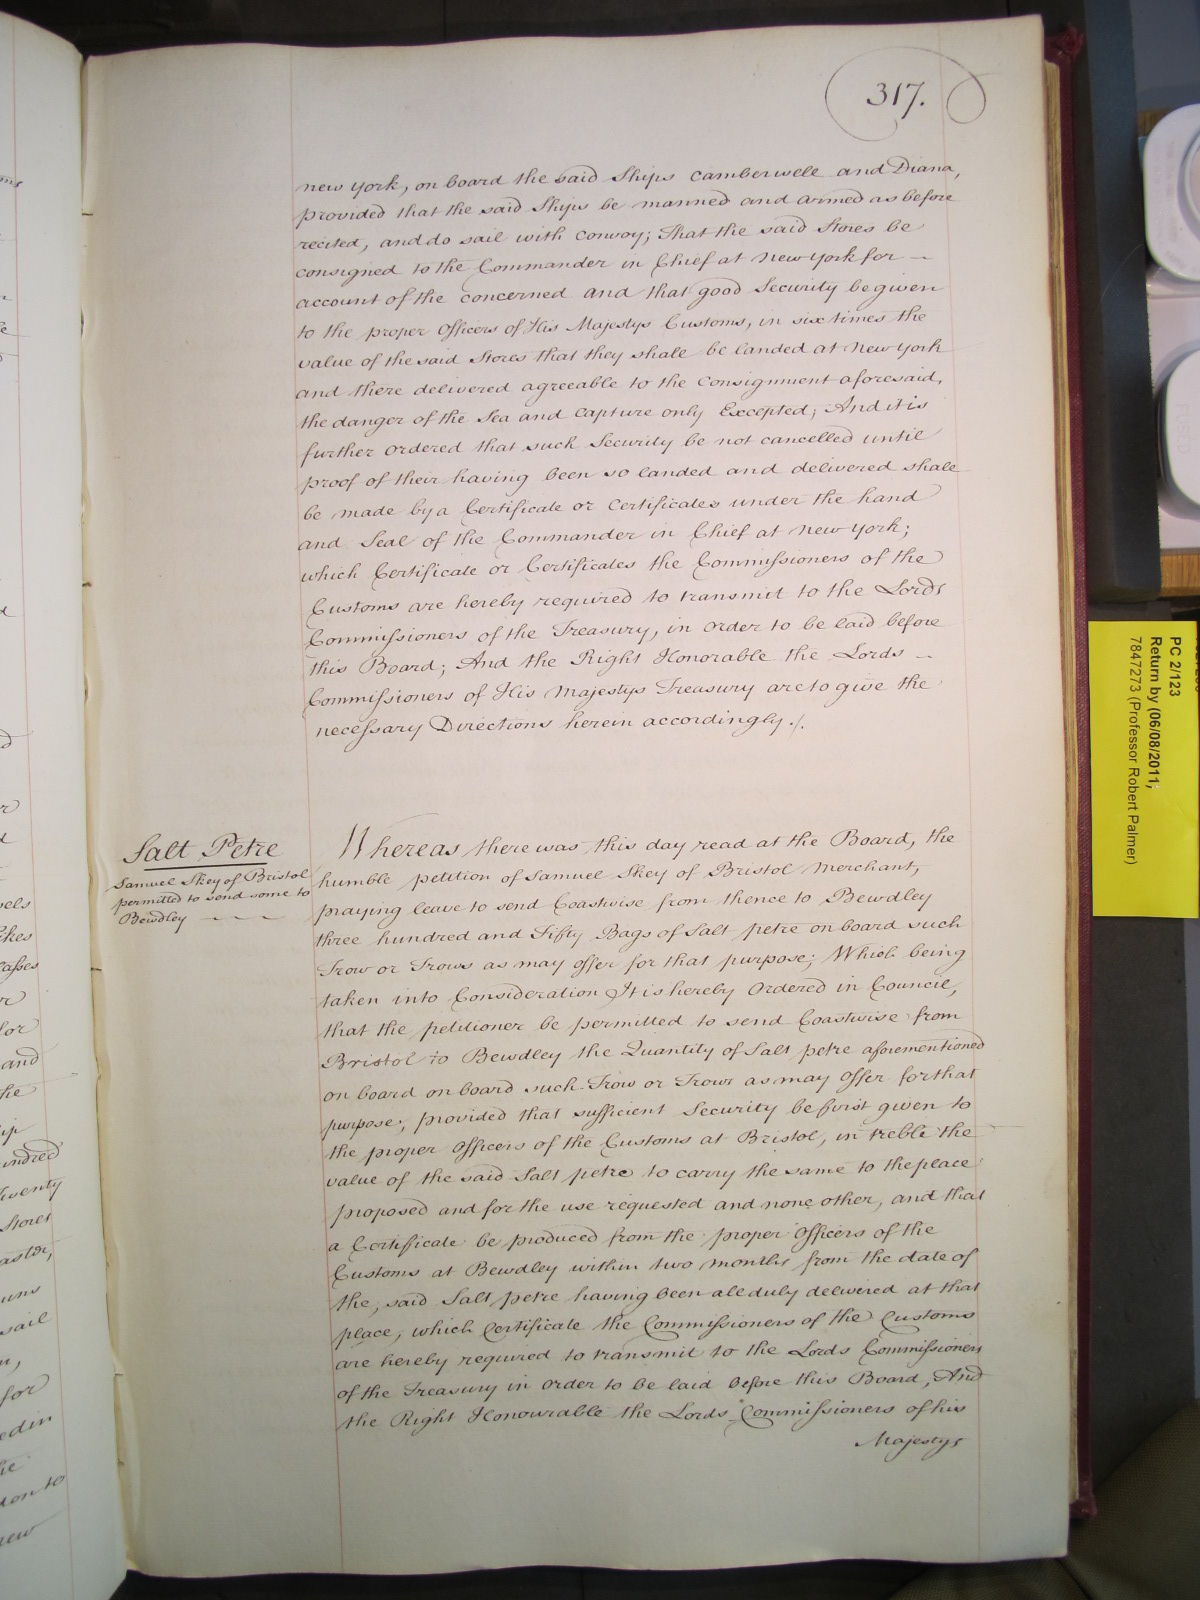 317.
new york, on board the said Ships Camberwell and Diana,
provided that the said Ships be manned and armed as before
recited, and do sail with Convoy; That the said Stores be
consigned to the Commander in Chief at new york for —
account of the concerned and that good Security be given
to the proper Officers of His Majestys Customs, in six times the
value of the said Stores that they shall be landed at New York
and there delivered agreeable to the Consignment aforesaid,
the danger of the Sea and Capture only Excepted; And it is
further ordered that such Security be not cancelled until
proof of their having been so landed and delivered shall
be made by a Certificate or Certificates under the hand
and Seal of the Commander in Chief at New York;
which Certificate or Certificates the Commissioners of the
Customs are hereby required to transmit to the Lords
Commissioners of the Treasury, in order to be laid before
this Board; And the Right Honorable the Lords —
Commissioners of His Majestys Treasury are to give the
necessary Directions herein accordingly./.
Salt Petre
Samuel Skey of Bristol
permitted to send some to
Bewdley — — —
Whereas there was this day read at the Board, the
humble petition of Samuel Skey of Bristol Merchant,
praying leave to send Coastwise from thence to Bewdley
three hundred and Fifty Bags of Salt petre on board such
Trow or Trows as may offer for that purpose; Which being
taken into Consideration It is hereby Ordered in Council,
that the petitioner be permitted to send Coastwise from
Bristol to Bewdley the Quantity of Salt petre aforementioned
on board on board such Trow or Trows as may Offer for that
purpose; provided that sufficient Security be first given to
the proper Officers of the Customs at Bristol, in treble the
value of the said Salt petre to carry the same to the place
proposed and for the use requested and none other, and that
a Certificate be produced from the proper Officers of the
Customs at Bewdley within two months from the date of
the, said Salt petre having been all duly delivered at that
place, which Certificate the Commissioners of the Customs
are hereby required to transmit to the Lords Commissioners
of the Treasury in order to be laid before this Board, And
the Right Honourable the Lords Commissioners of his
Majestys
PC 2/123
Return by (06/08/2011;
7847273 (Professor Robert Palmer)